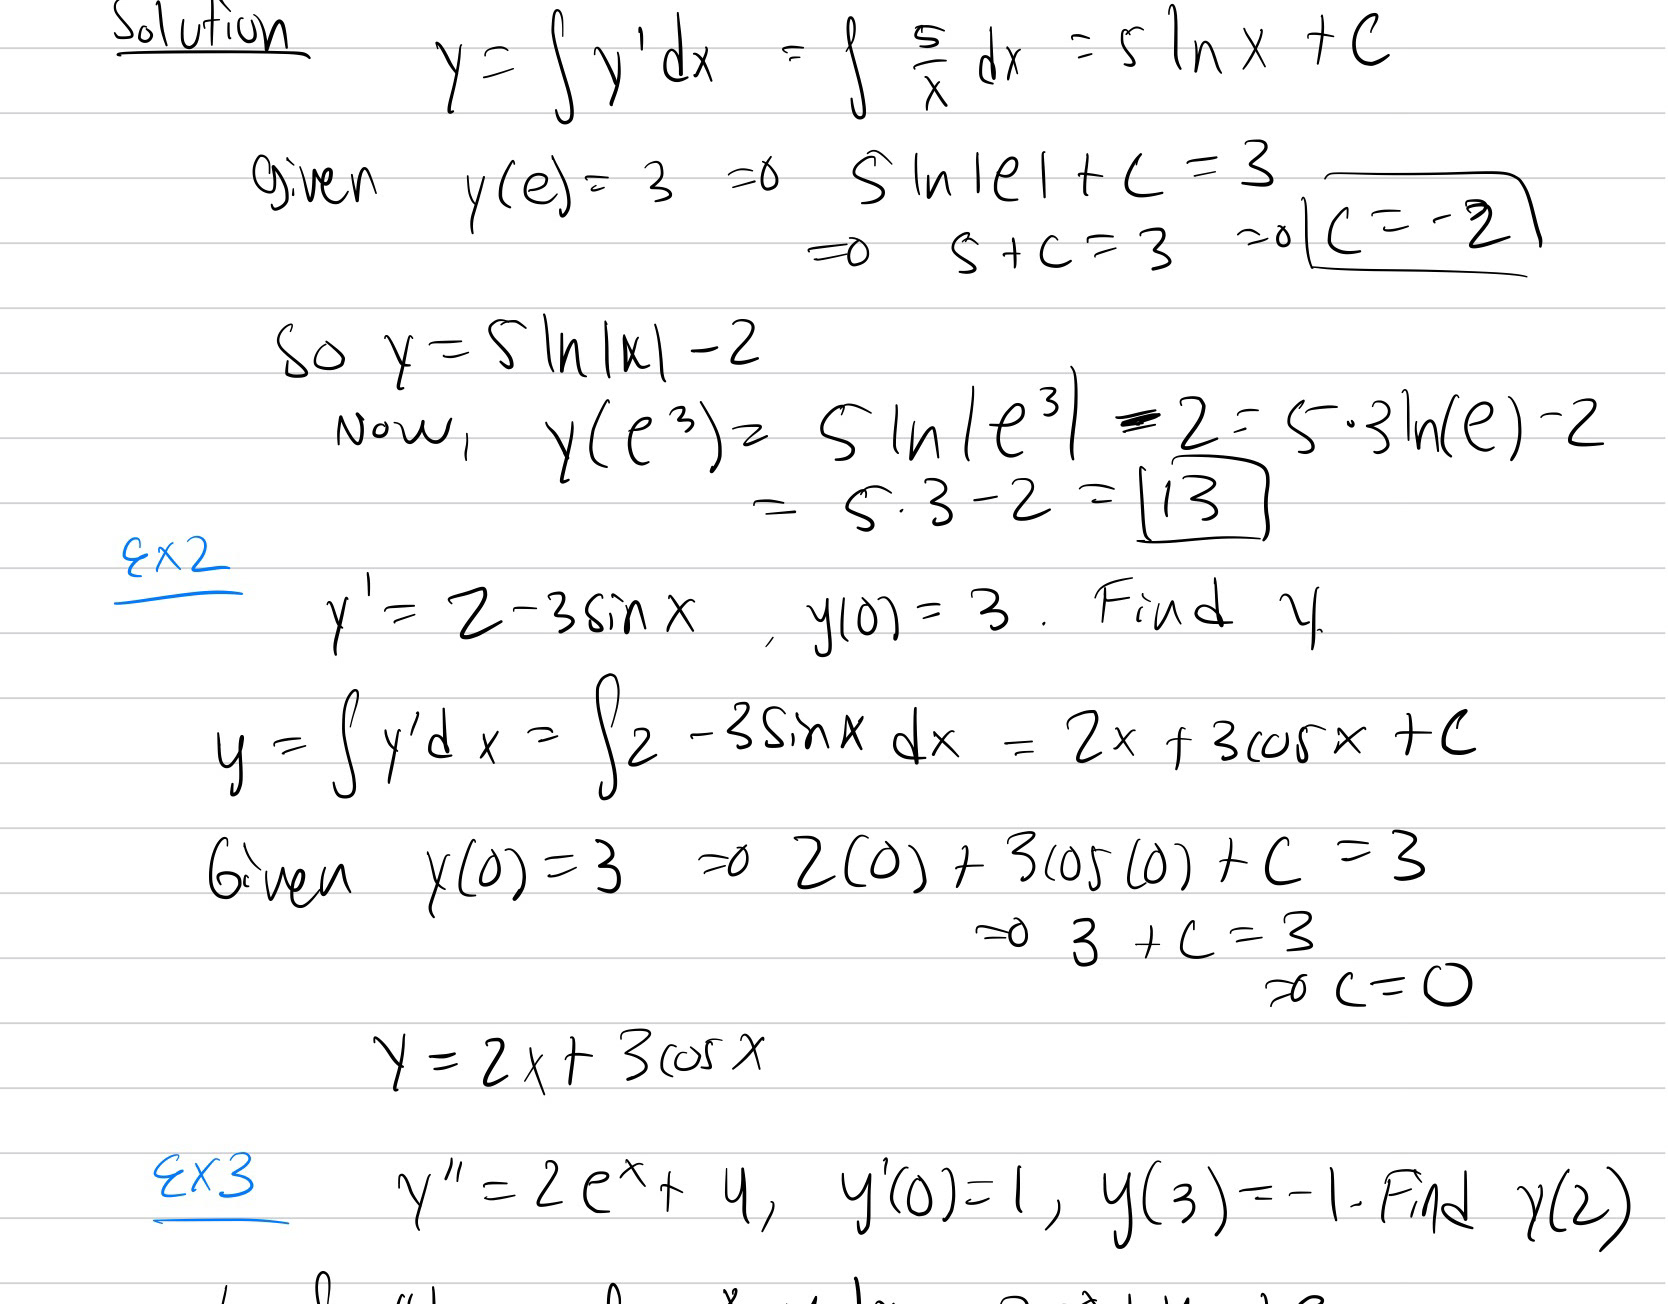 Solution y = ∫ y' dx = ∫ 5/x dx = 5 ln x + C
Given y(e) = 3 ⇒ 5 ln|e| + C = 3
⇒ 5 + C = 3 ⇒ C = -2
So y = 5 ln|x| - 2
Now, y(e³) = 5 ln|e³| - 2 = 5·3 ln(e) - 2
= 5·3 - 2 = 13
Ex2
y' = 2 - 3 sin x , y(0) = 3. Find y.
y = ∫ y' dx = ∫ 2 - 3 sin x dx = 2x + 3 cos x + C
Given y(0) = 3 ⇒ 2(0) + 3 cos(0) + C = 3
⇒ 3 + C = 3
⇒ C = 0
y = 2x + 3 cos x
Ex3 y'' = 2e^x + 4, y'(0) = 1, y(3) = -1. Find y(2)